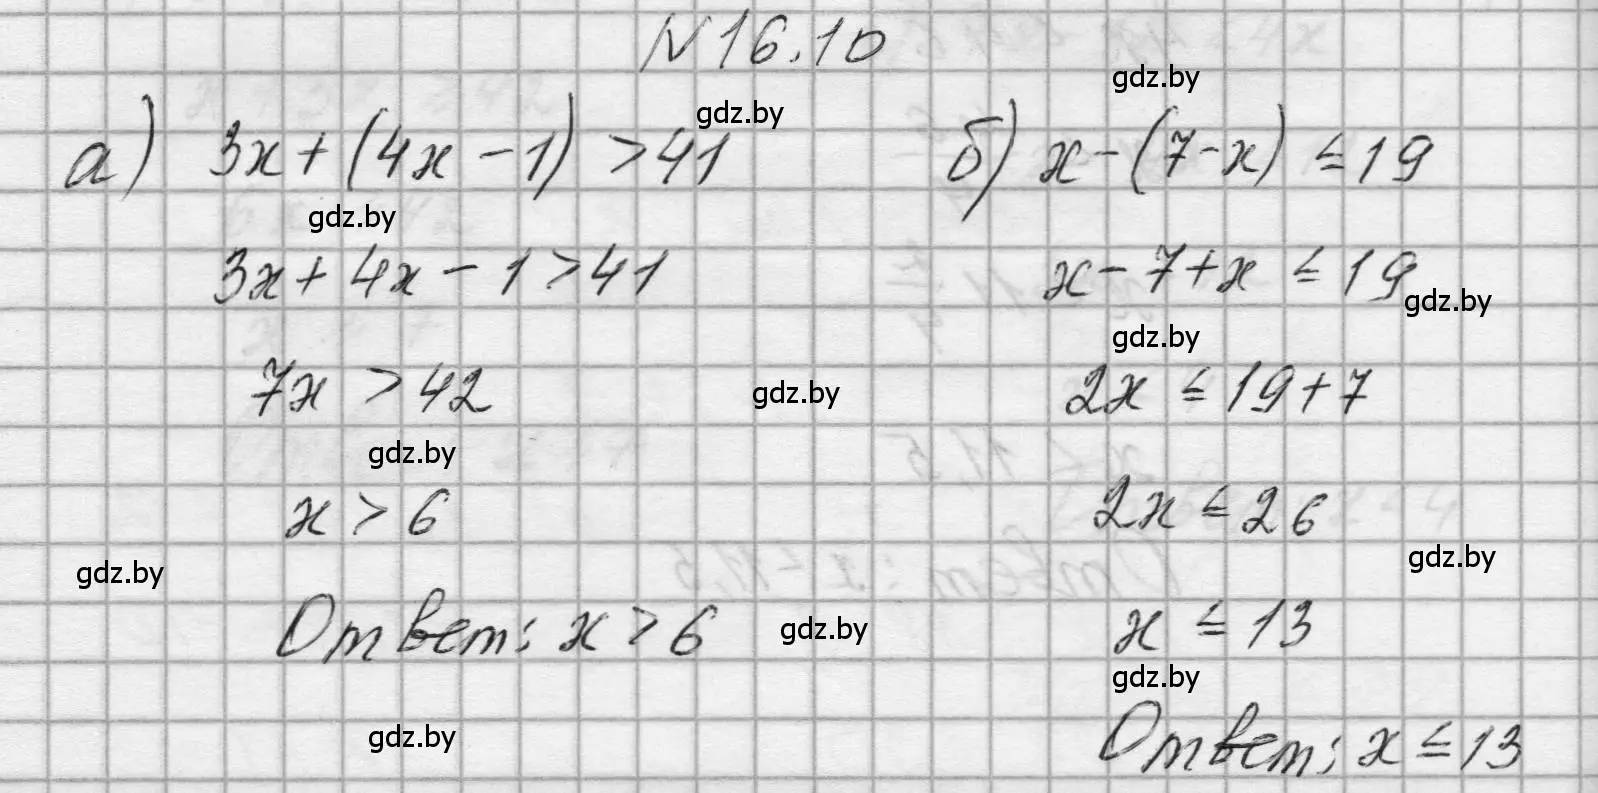 N 16.10
а) 3x + (4x - 1) > 41
3x + 4x - 1 > 41
7x > 42
x > 6
Ответ: x > 6
б) x - (7 - x) ≤ 19
x - 7 + x ≤ 19
2x ≤ 19 + 7
2x ≤ 26
x ≤ 13
Ответ: x ≤ 13
gdz.by
gdz.by
gdz.by
gdz.by
gdz.by
gdz.by
gdz.by
gdz.by
gdz.by
gdz.by
gdz.by
gdz.by